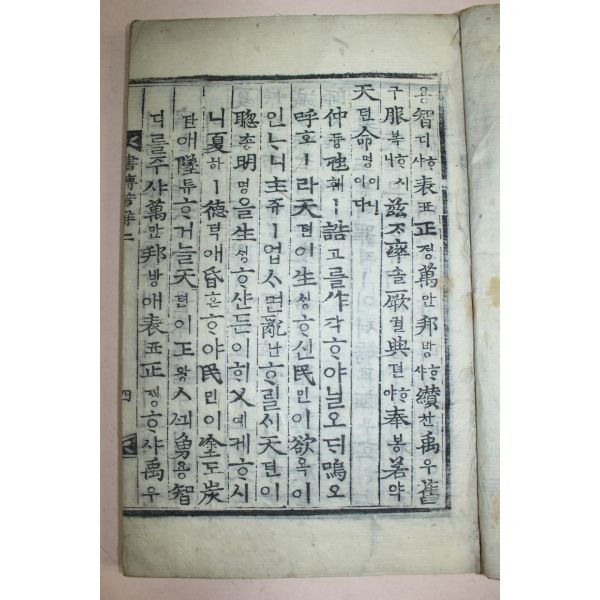 용智디ᄒᆞ샤表표正졍萬만邦방ᄒᆞ샤纘찬禹우舊
구服복ᄒᆞ시茲ᄌᆞ率솔厥궐典뎐ᄒᆞ야奉봉若약
天텬命명이니이다
仲듕虺훼ㅣ誥고를作작ᄒᆞ야닐오ᄃᆡ嗚오
呼호ㅣ라天텬이生ᄉᆡᆼᄒᆞ신民민이欲욕이
인ᄂᆞ니主쥬ㅣ업ᄉᆞ면亂난ᄒᆞ릴ᄉᆡ天텬이
聰총明명을生ᄉᆡᆼᄒᆞ샨든이히乂예케ᄒᆞ시
니夏하ㅣ德덕애昏혼ᄒᆞ야民민이塗도炭
탄애墜튜ᄒᆞ거늘天텬이王왕ᄭᅴ勇용智
디를주샤萬만邦방애表표正졍ᄒᆞ샤禹우
書傳諺解二 四